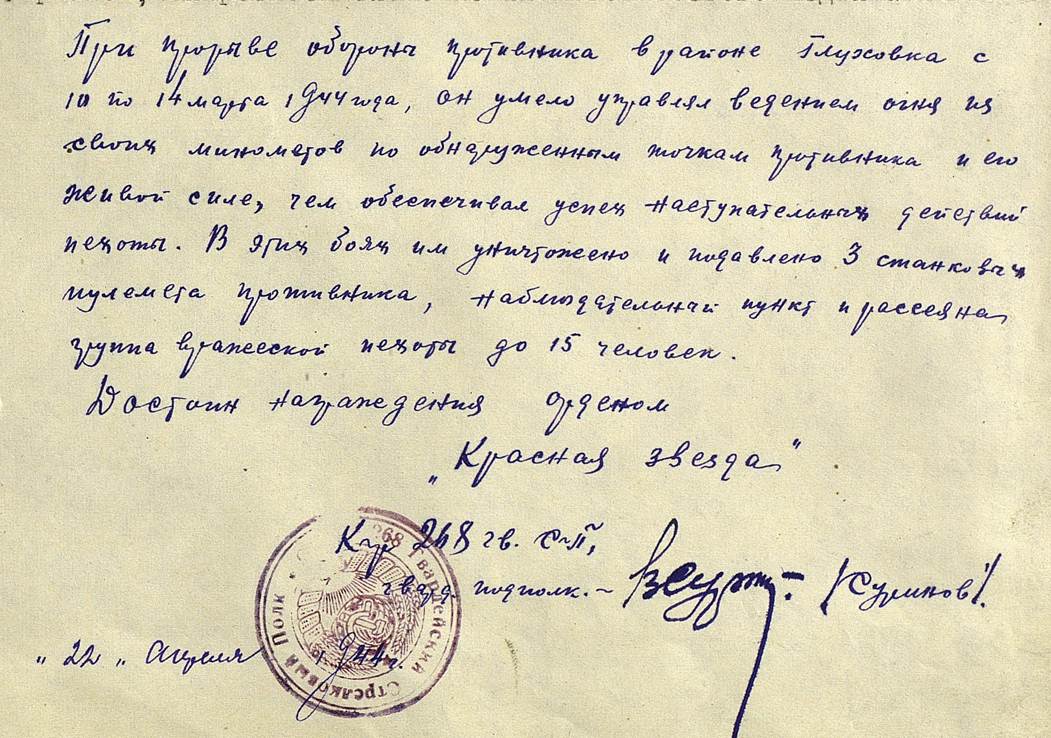 При прорыве обороны противника в районе Глуховка с
10 по 14 марта 1944 года, он умело управлял ведением огня из
своих минометов по обнаруженным точкам противника и его
живой силе, чем обеспечивал успех наступательных действий
пехоты. В этих боях им уничтожено и подавлено 3 станковых
пулемета противника, наблюдательный пункт и рассеяна
группа вражеской пехоты до 15 человек.
Достоин награждения орденом
„Красная звезда"
К-р 268 гв. С.П.
гвард. подполк. – /Суринов/.
„22„ Апреля 1944 г.
268 Гвардейский Стрелковый Полк